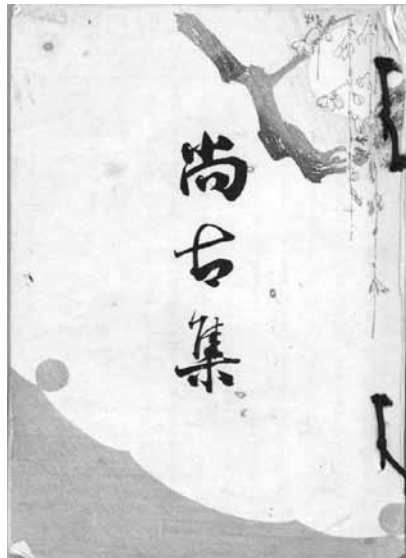 尚古集